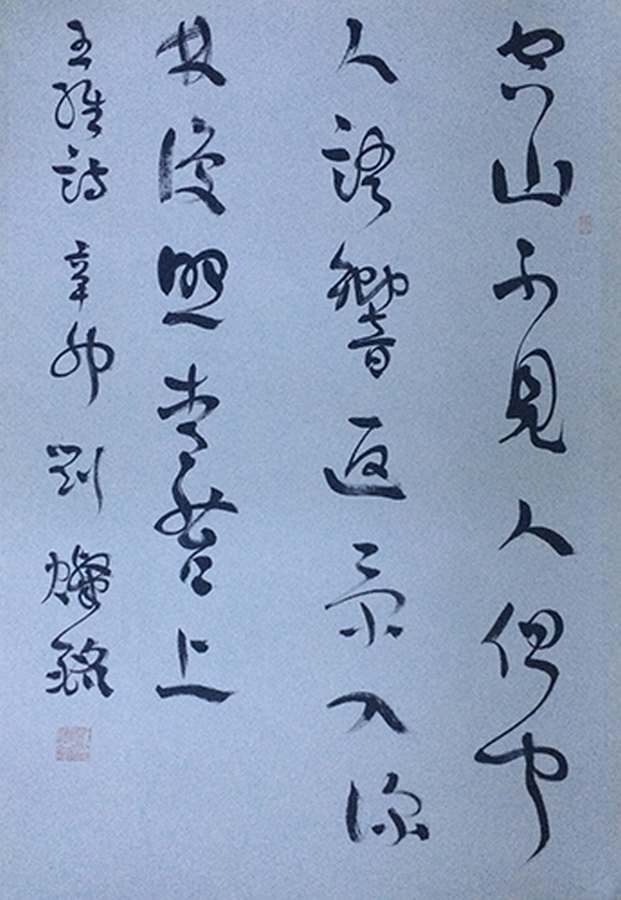 空山不見人但聞
人語響返景入深
林復照青苔上
王維詩 辛卯 劉燦銘